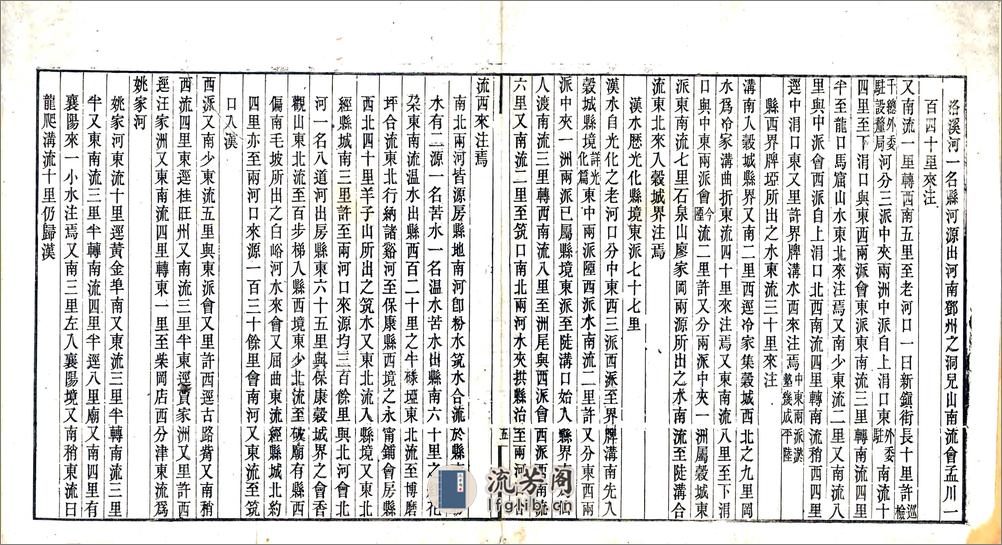 洛溪河一名縣河源出河南鄧州之洞兒山南流會孟川一
百四十里來注
又南流一里轉西南五里至老河口一曰新鎮街長十里許巡檢
千總外委駐設釐局河分三派中夾兩洲中東派自上涓口東駐外委南流十
四里至下涓口南兩派會東南流三里轉南流四里
半至龍口馬窟山水東北來注焉又南少東流二里又南流八
里與中派會西派自上涓口北西南流四里轉南流稍西四里
逕中涓口東又里許界牌溝水西來注焉中東兩派淤墊幾成平陸
縣西界牌埡所出之水東流三十里來注
溝南入穀城縣界又南二里西逕冷家集穀城西北之九里岡
水為冷家溝曲折東流四十里來注焉又南流八里至下涓
口與中東兩派會今陸流二里許又分兩派中夾一洲屬穀城東
派東南流七里石泉山廖家岡兩源所出之水南流至陡溝合
流東北來入穀城界注焉
漢水歷光化縣境東派七十七里
漢水自光化之老河口分中東西三派西派至界牌溝南先入
穀城縣境詳光化篇東中兩派陸西派水南流二里許又分東西兩
派中夾一洲兩派已屬縣境東派至陡溝口始入縣界南流仙
人渡南流三里轉西南流八里至洲尾與西派會西派南流
六里又南流二里至筑口南北兩河水夾拱縣治至兩河
流西來注焉
南北兩河皆源房縣地南河卽粉水筑水合流於縣
水有二源一名苦水一名温水苦水出縣南六十里之花
棻東南流温水出縣西百二十里之牛碌埡東北流至博磨
坪合流東北行納諸谿河至保康縣西境之永甯鋪會房縣
西北四十里羊子山所出之筑水又東北流入縣境又東北
經縣城南三里許至兩河口來源均三百餘里與北河會北
河一名八道河出房縣東六十五里與保康穀城界之會香
觀山東北流至百步梯入縣西境東少北流至破廟有縣西
偏南毛坡所出之白峪河水來會又屈曲東流經縣城北約
四里亦至兩河口來源一百三十餘里會南河又東流至筑
口入漢
西派又南少東流五里與東派會又里許西逕古路觜又南稍
西流四里東逕桂旺州又南流三里半東逕賈家洲又里許西
逕汪家洲又東南流四里轉東一里至柴岡店西分津東流為
姚家河
姚家河東流十里逕黃金峷南又東流三里半轉南流三里
半又東南流三里半轉南流四里半逕八里廟又南四里有
襄陽來一小水注焉又南三里左入襄陽境又南稍東流曰
龍爬溝流十里仍歸漢
五
流芳阁
lfglib.com